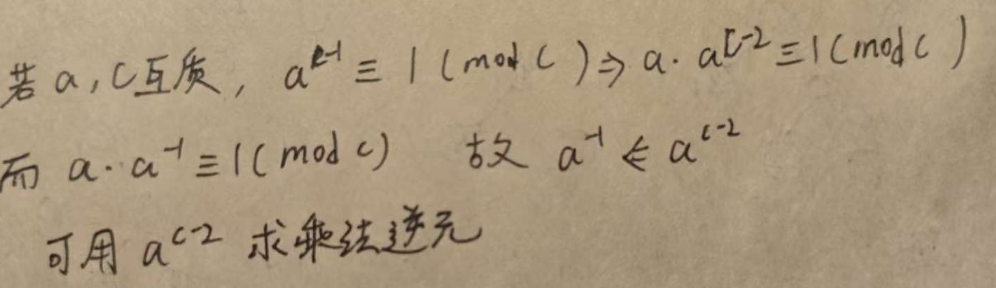 若 a, c互质, a^{c-1} ≡ 1 (mod c) ⇒ a · a^{c-2} ≡ 1 (mod c)
而 a · a^{-1} ≡ 1 (mod c) 故 a^{-1} ⋞ a^{c-2}
可用 a^{c-2} 求乘法逆元